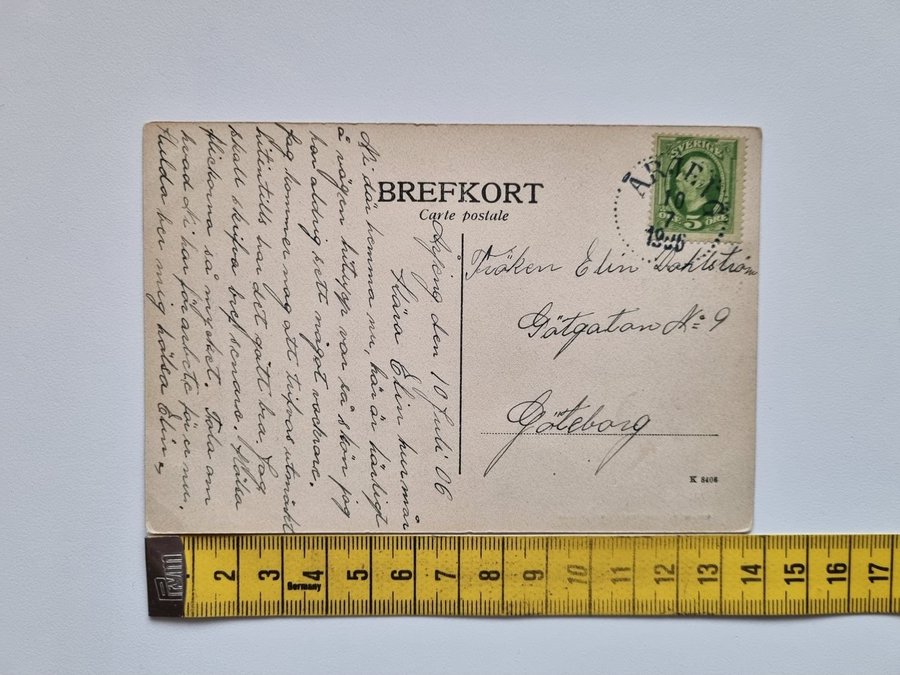 BREFKORT
Carte postale
SVERIGE
5 ÖRE
ÅRJENG
10
7
1906
Fröken Elin Dahlström
Götgatan No 9
Göteborg
K 8406
Årjeng den 10 Juli 06
Kära Elin hur mår
Ni där hemma nu, här är härligt
å vägen hitupp var så skön jag
har aldrig sett något vackrare.
Jag kommer nog att trifvas utmärkt
hitintills har det gått bra, Jag
skall skrifva bref senare. Hälsa
flickorna så mycket. Tala om
hvad Ni har för arbete för er nu,
Hulda ber mig hälsa Elin
1 2 3 4 5 6 7 8 9 10 11 12 13 14 15 16 17
Germany